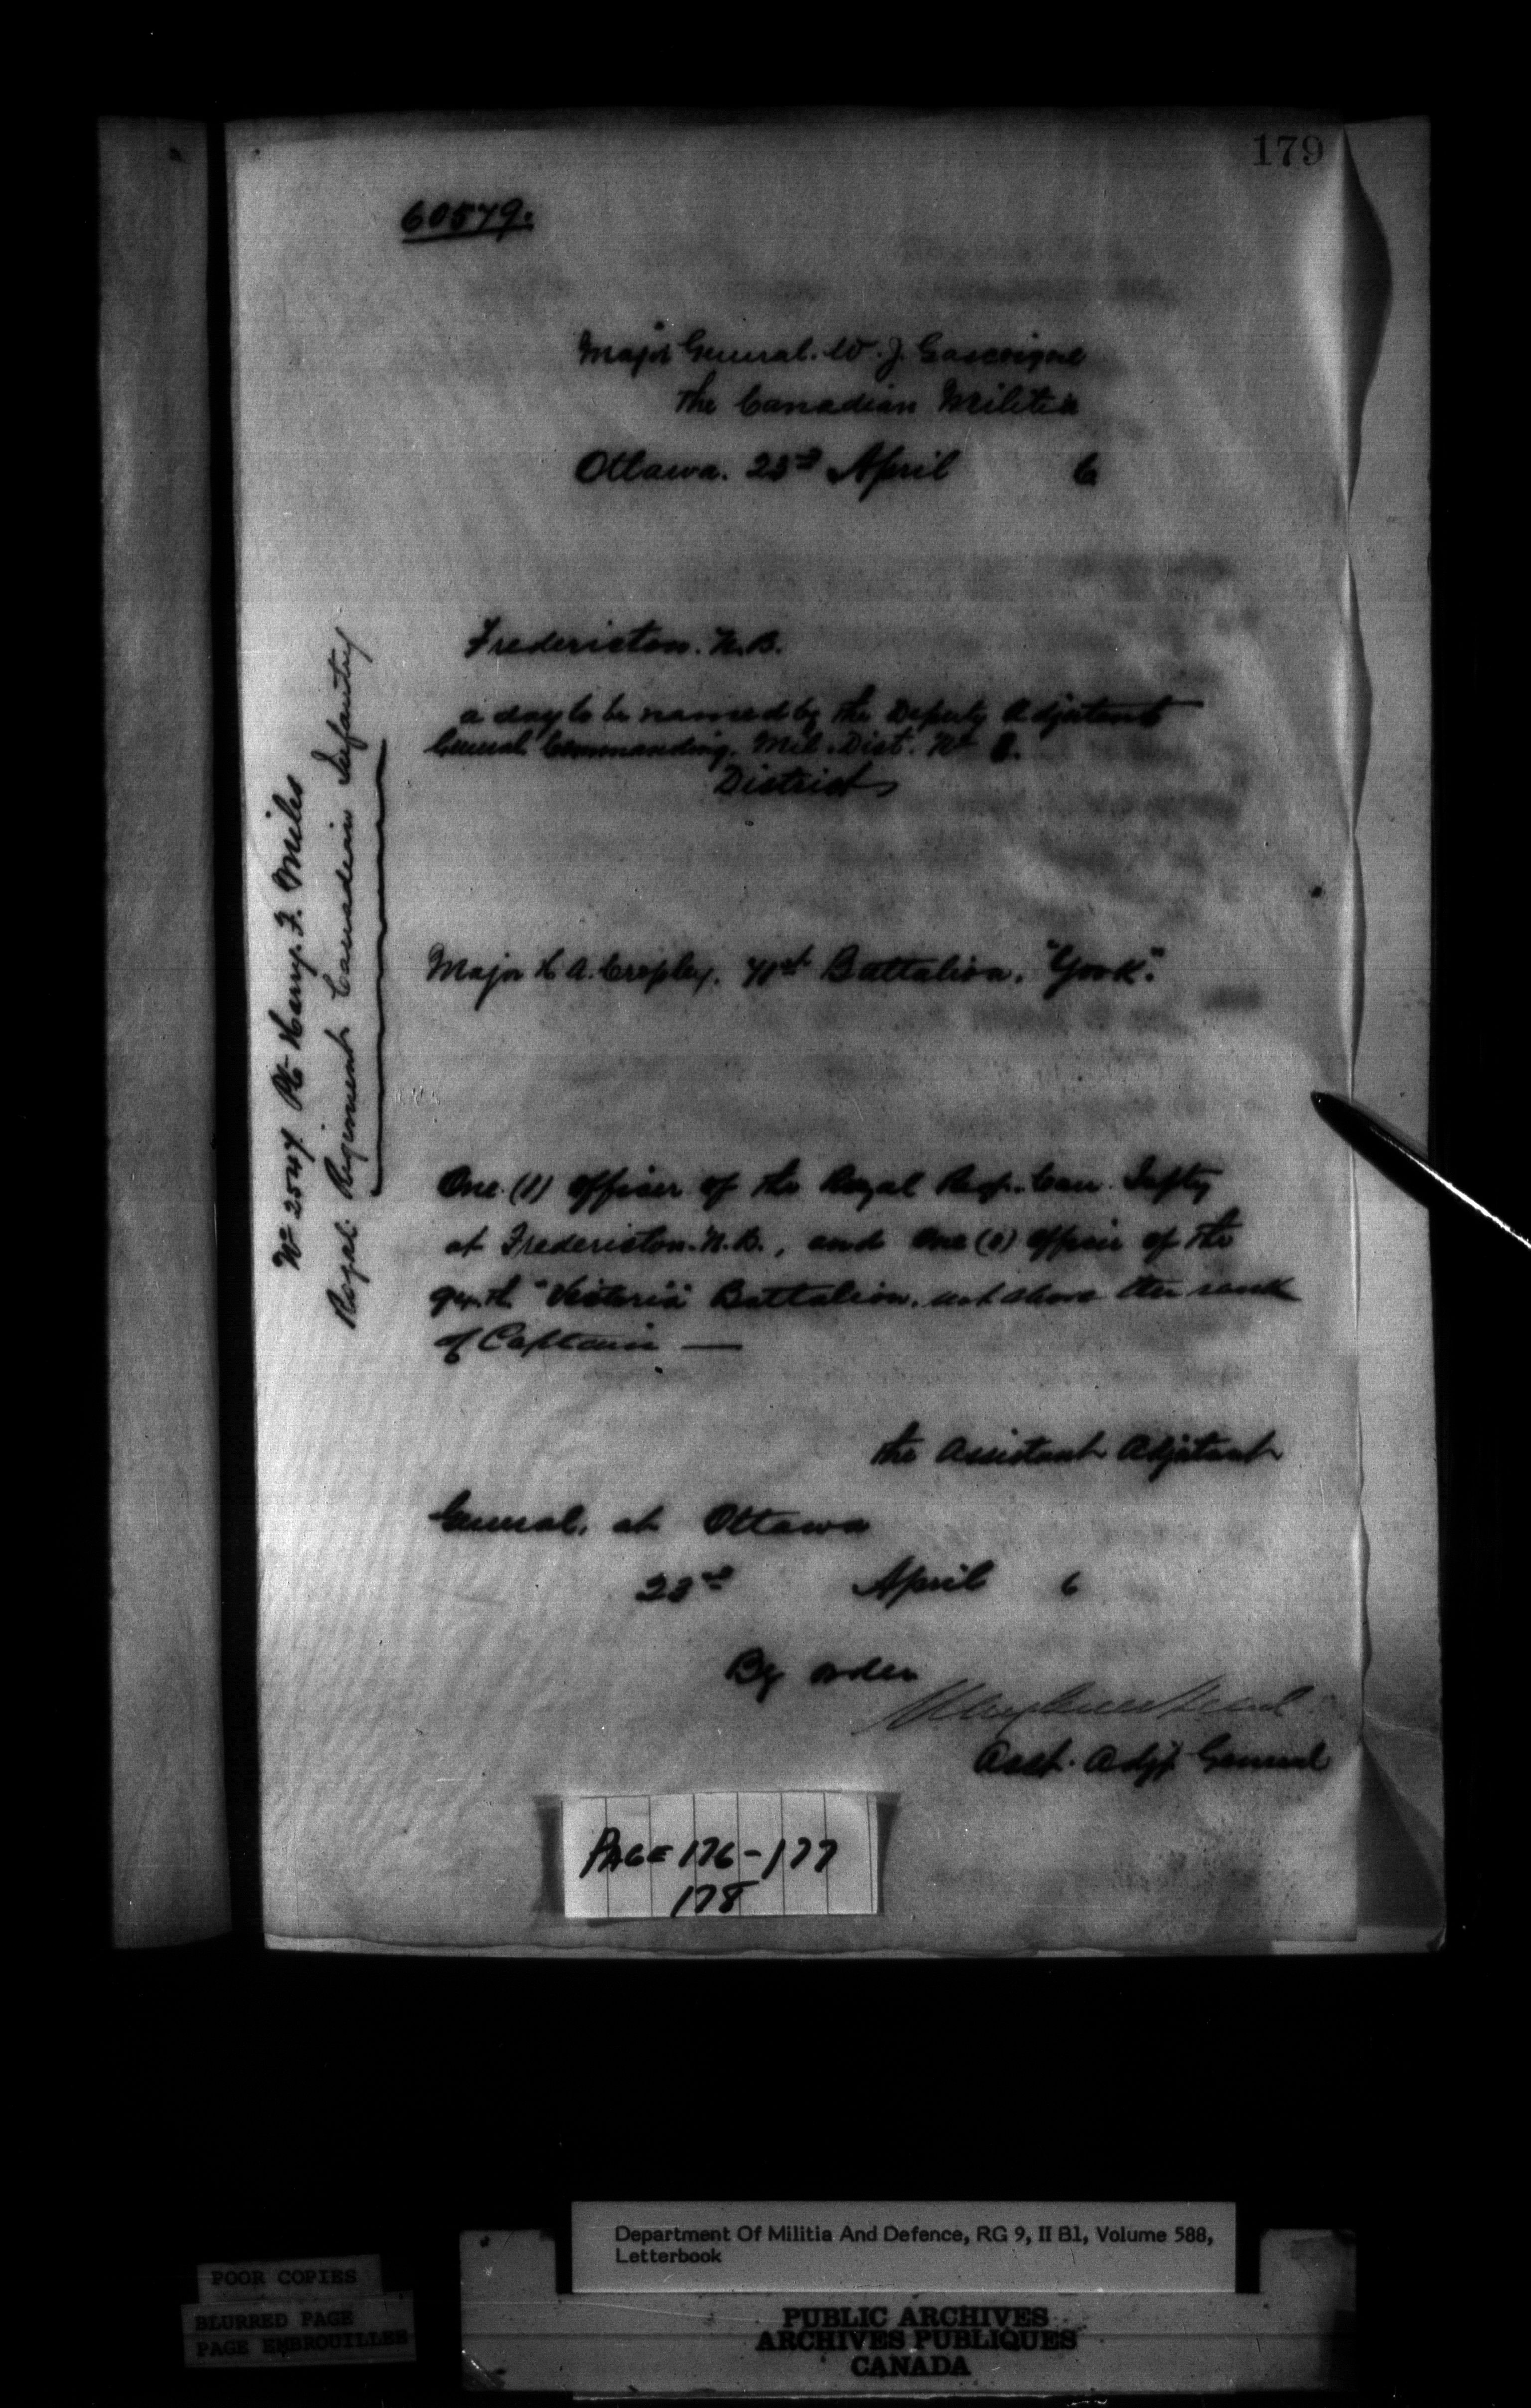 179
60579.
Major General. W. J. Gascoigne
the Canadian Militia
Ottawa. 23rd April 6
Fredericton. N.B.
a day to be named by the Deputy Adjutant
General Commanding. Mil. Dist. No 8.
District
No 2547 Pte Harry. F. Miles
Royal Regiment Canadian Infantry
Major H. A. Cropley. 71st Battalion. "York".
One (1) officer of the Royal Regt. Can. Infty
at Fredericton. N.B., and One (1) officer of the
"Victoria" Battalion. not above the rank
of Captain —
the Assistant Adjutant
General. at Ottawa
23rd April 6
By order
Asst. Adjt General
PAGE 176-177
178
Department Of Militia And Defence, RG 9, II B1, Volume 588,
Letterbook
POOR COPIES
BLURRED PAGE
PAGE EMBROUILLEE
PUBLIC ARCHIVES
ARCHIVES PUBLIQUES
CANADA